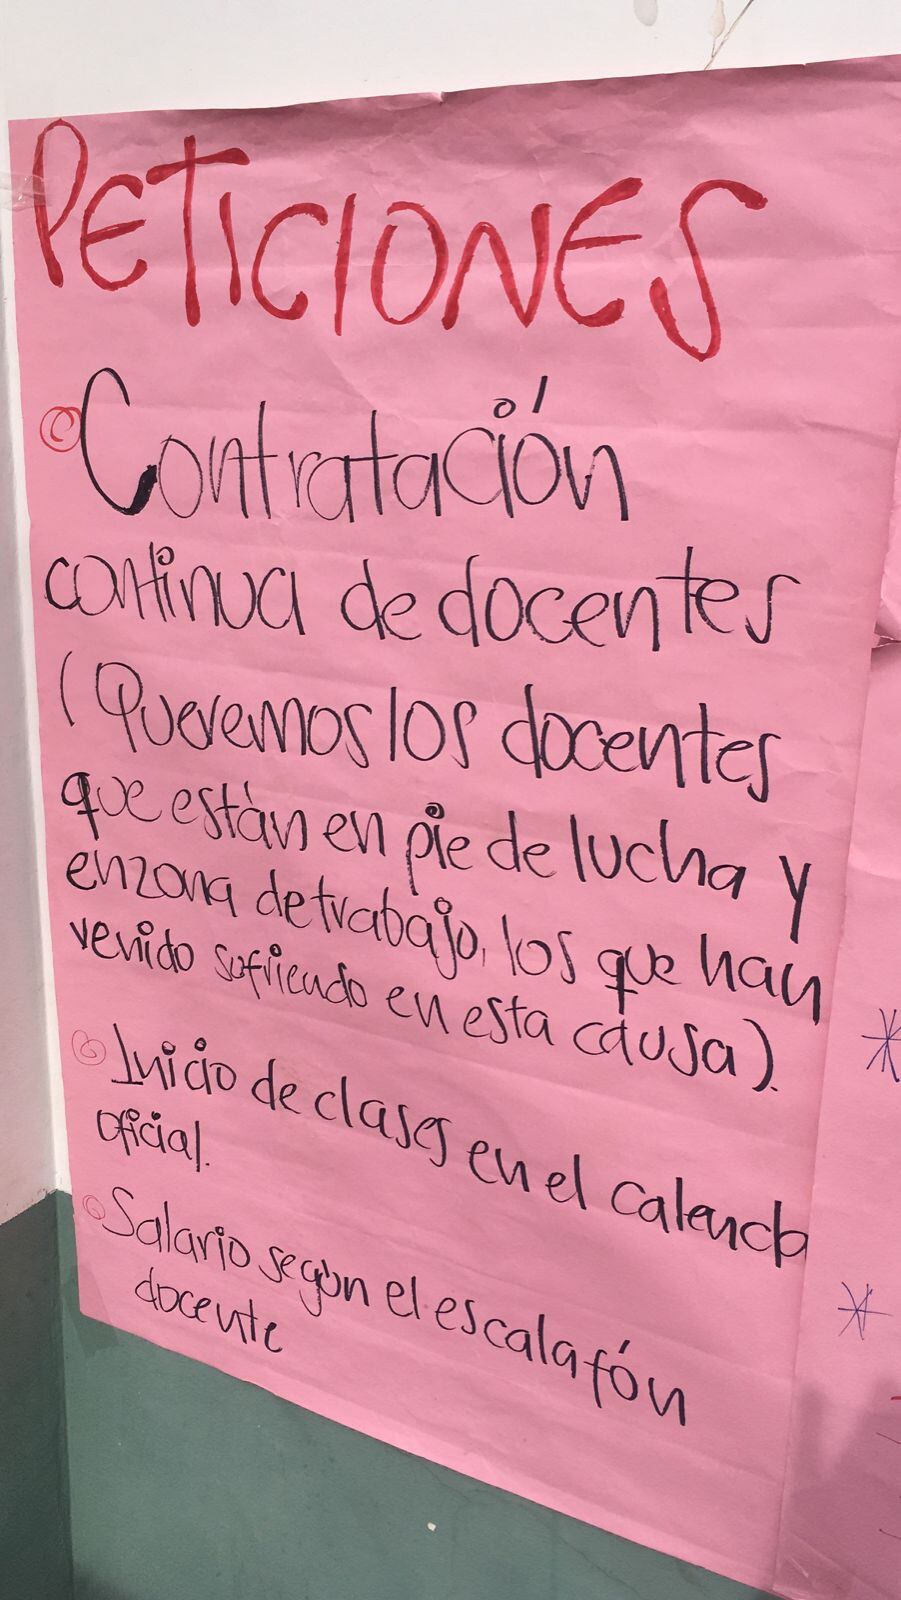 PETICIONES
Contratación
continua de docentes
(Queremos los docentes
que están en pie de lucha y
en zona de trabajo, los que han
venido sufriendo en esta causa).
Inicio de clases en el calendo
oficial.
Salario según el escalafón
docente